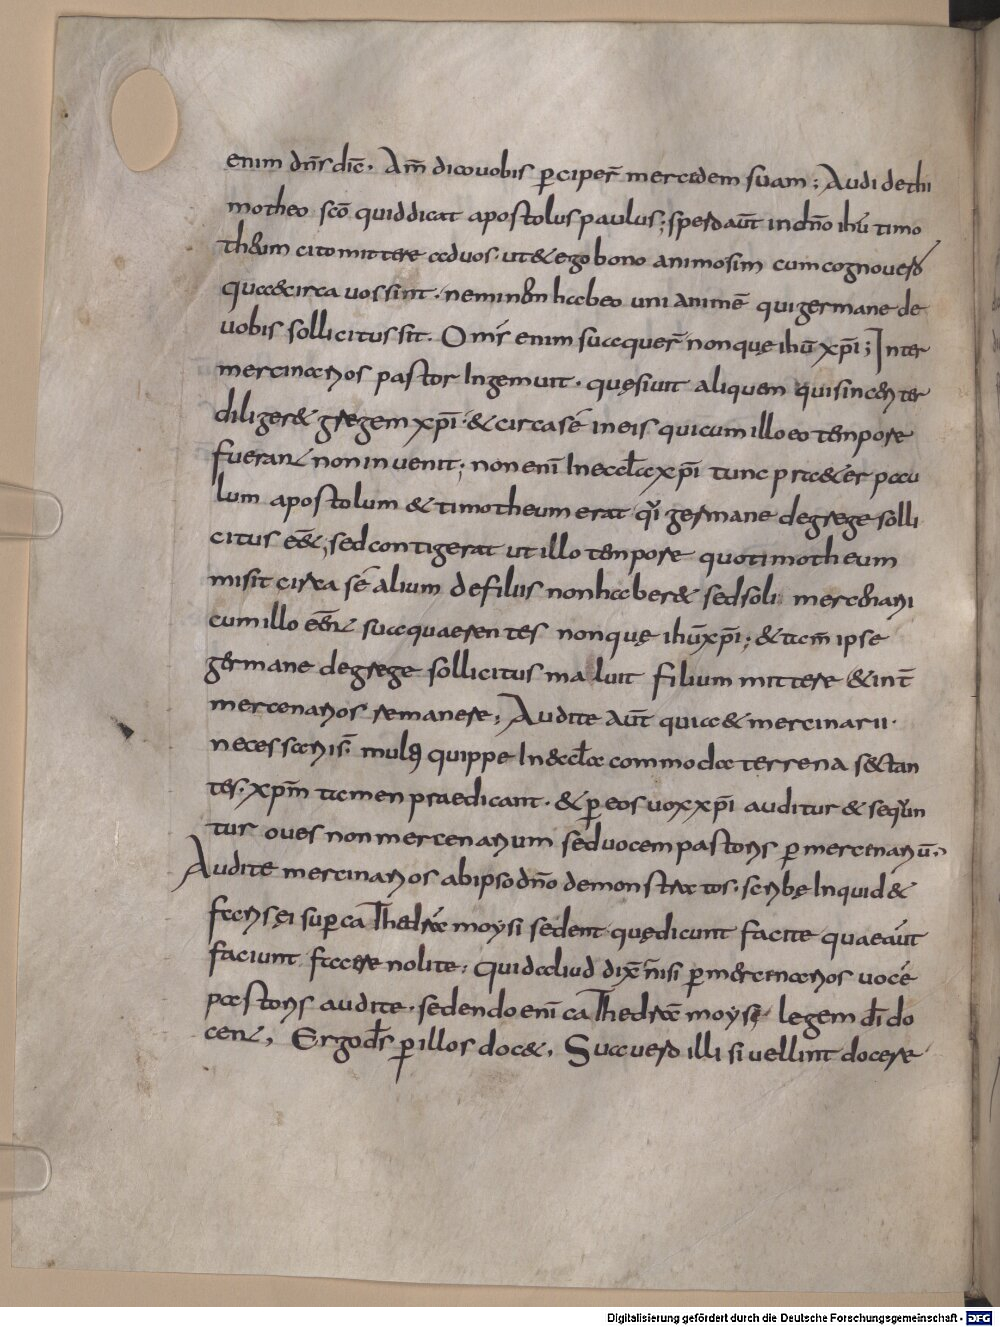 enim dn̄s dic̄. Am̄ dico uobis p̄ciper̄ mercedem suam; Audi de thi
motheo sc̄o quid dicat apostolus paulus; spero aut̄ in dn̄o ihū timo
theum cito mittere ad uos. ut & ego bono animo sim cum cognouero
quae circa uos sint. neminem habeo unianimē qui germane de
uobis sollicitus sit. Om̄s enim sua quer̄ non quę ihū xp̄i; Inter
mercinarios pastor Ingemuit. quęsiuit aliquem qui sinceriter
diliger& gregem xp̄i. & circa sē in eis qui cum illo eo tempore
fuerant non inuenit; non enī In eccl̄a xp̄i tunc praeter pau
lum apostolum & timotheum erat qui germane de grege solli
citus eēt; sed contigerat ut illo tempore quo timotheum
misit circa sē alium de filiis non haber& sed soli mercenarii
cum illo eēnt sua quaerentes non quę ihū xp̄i; & tam̄ ipse
germane de grege sollicitus maluit filium mittere & int̄
mercenarios remanere; Audite aut̄ quia & mercinarii.
necessarii s̄. multi quippe In eccl̄a commoda terrena sectan
tes. xp̄m tamen praedicant. & p̄ eos uox xp̄i auditur & sequun
tur oues non mercenarium sed uocem pastoris p̄ mercenariū.
Audite mercinarios ab ipso dn̄o demonstratos. scribę Inquid &
farisęi sup̄ cathedrā moysi sedent. quę dicunt facite quae aūt
faciunt facere nolite; quid aliud dix̄ nisi p̄ mercenarios uocē
pastoris audite. sedendo enī cathedrā moysi legem dī do
cent, Ergo d̄s p̄ illos doc&, Sua uero illi si uellint docere
Digitalisierung gefördert durch die Deutsche Forschungsgemeinschaft - DFG